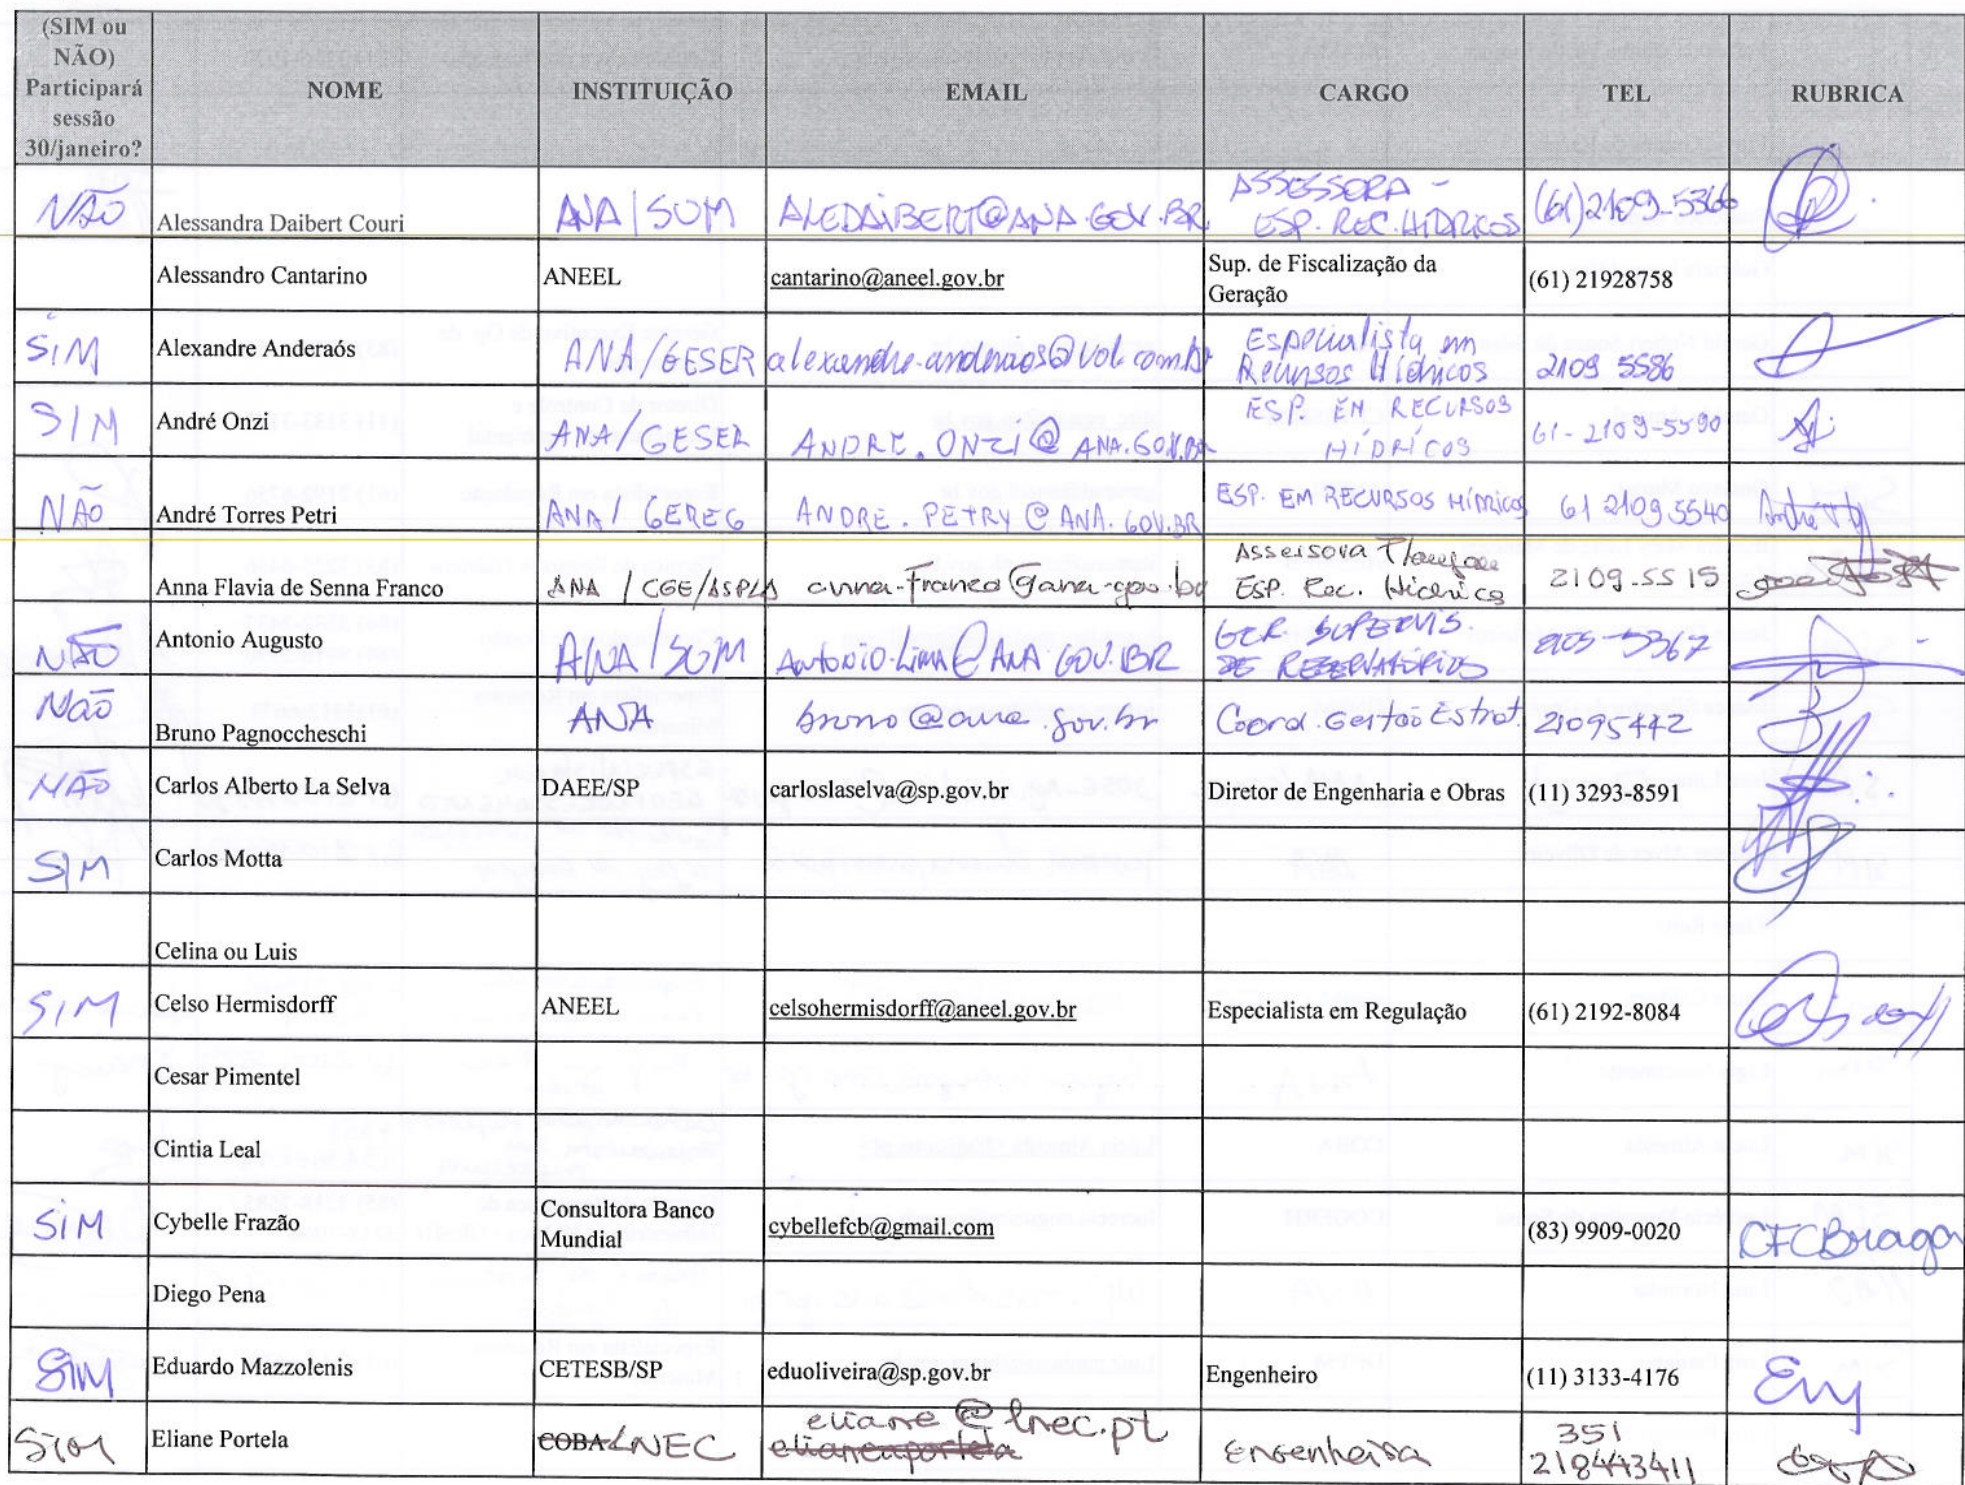 (SIM ou NÃO) Participará sessão 30/janeiro? NOME INSTITUIÇÃO EMAIL CARGO TEL RUBRICA
NÃO Alessandra Daibert Couri ANA/SUM ALEDAIBERT@ANA.GOV.BR ASSESSORA - ESP. REC. HIDRICOS (61)2109-5366
Alessandro Cantarino ANEEL cantarino@aneel.gov.br Sup. de Fiscalização da Geração (61) 21928758
SIM Alexandre Anderaós ANA/GESER alexandre.anderaos@uol.com.br Especialista em Recursos Hídricos 2109 5586
SIM André Onzi ANA/GESER ANDRE.ONZI@ANA.GOV.BR ESP. EM RECURSOS HÍDRICOS 61-2109-5590
NÃO André Torres Petri ANA/GEREG ANDRE.PETRY@ANA.GOV.BR ESP. EM RECURSOS HÍDRICOS 61 2109 5540
Anna Flavia de Senna Franco ANA / CGE/ASPLA anna.franco@ana.gov.br Assessora ESP. Rec. Hídricos 2109-5515
NÃO Antonio Augusto ANA/SUM ANTONIO.LIMA@ANA.GOV.BR GER. SUPERVIS. DE RESERVATÓRIOS 2109-5367
Não Bruno Pagnoccheschi ANA bruno@ana.gov.br Coord. Gestão Estrat. 21095442
NÃO Carlos Alberto La Selva DAEE/SP carloslaselva@sp.gov.br Diretor de Engenharia e Obras (11) 3293-8591
SIM Carlos Motta
Celina ou Luis
SIM Celso Hermisdorff ANEEL celsohermisdorff@aneel.gov.br Especialista em Regulação (61) 2192-8084
Cesar Pimentel
Cintia Leal
SIM Cybelle Frazão Consultora Banco Mundial cybellefcb@gmail.com (83) 9909-0020 CFCBraga
Diego Pena
SIM Eduardo Mazzolenis CETESB/SP eduoliveira@sp.gov.br Engenheiro (11) 3133-4176
SIM Eliane Portela COBA LNEC eliane@lnec.pt elianeaportela Engenheira 351 218443411